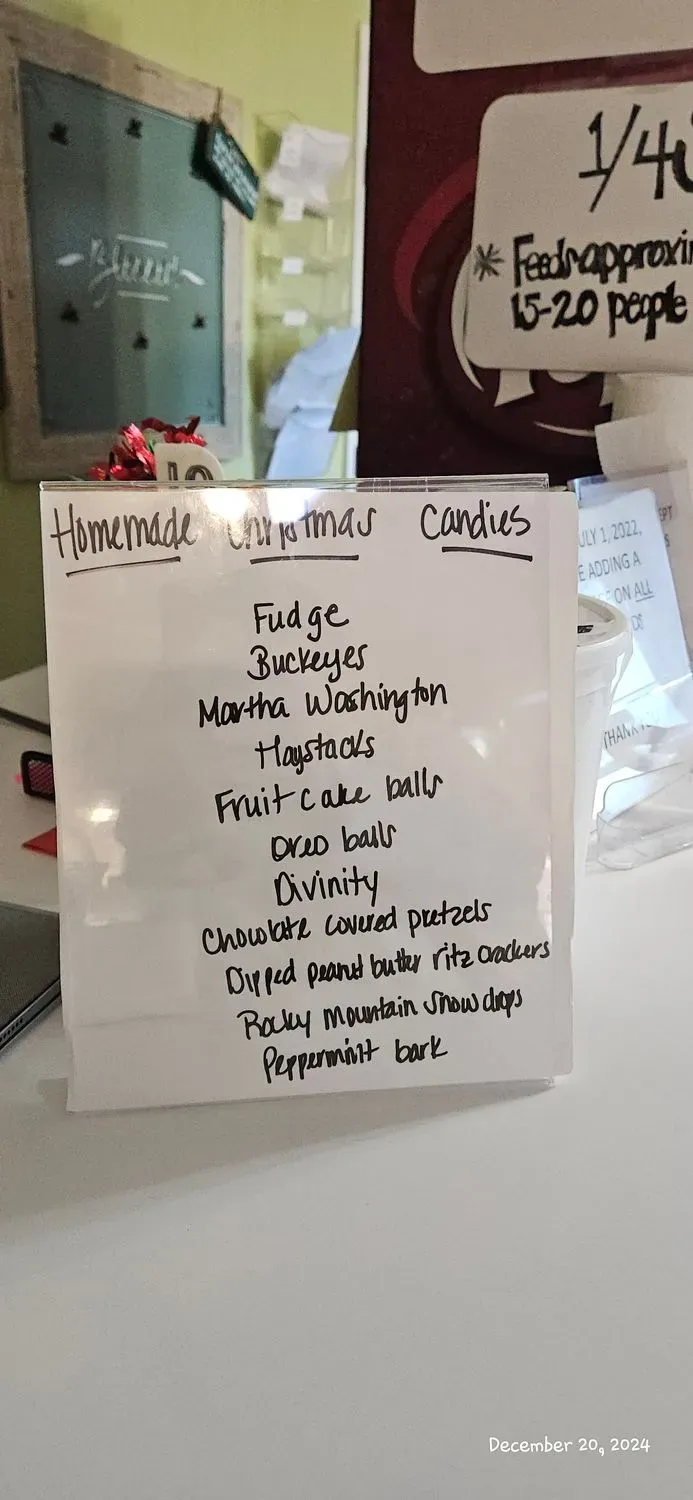 1/4
* Feeds approxi
15-20 people
Homemade Christmas Candies
Fudge
Buckeyes
Martha Washington
Haystacks
Fruit cake balls
oreo balls
Divinity
Chocolate covered pretzels
Dipped peanut butter ritz crackers
Rocky mountain snow drops
Peppermint bark
ULY 1, 2022,
E ADDING A
ON ALL
THANK
December 20, 2024